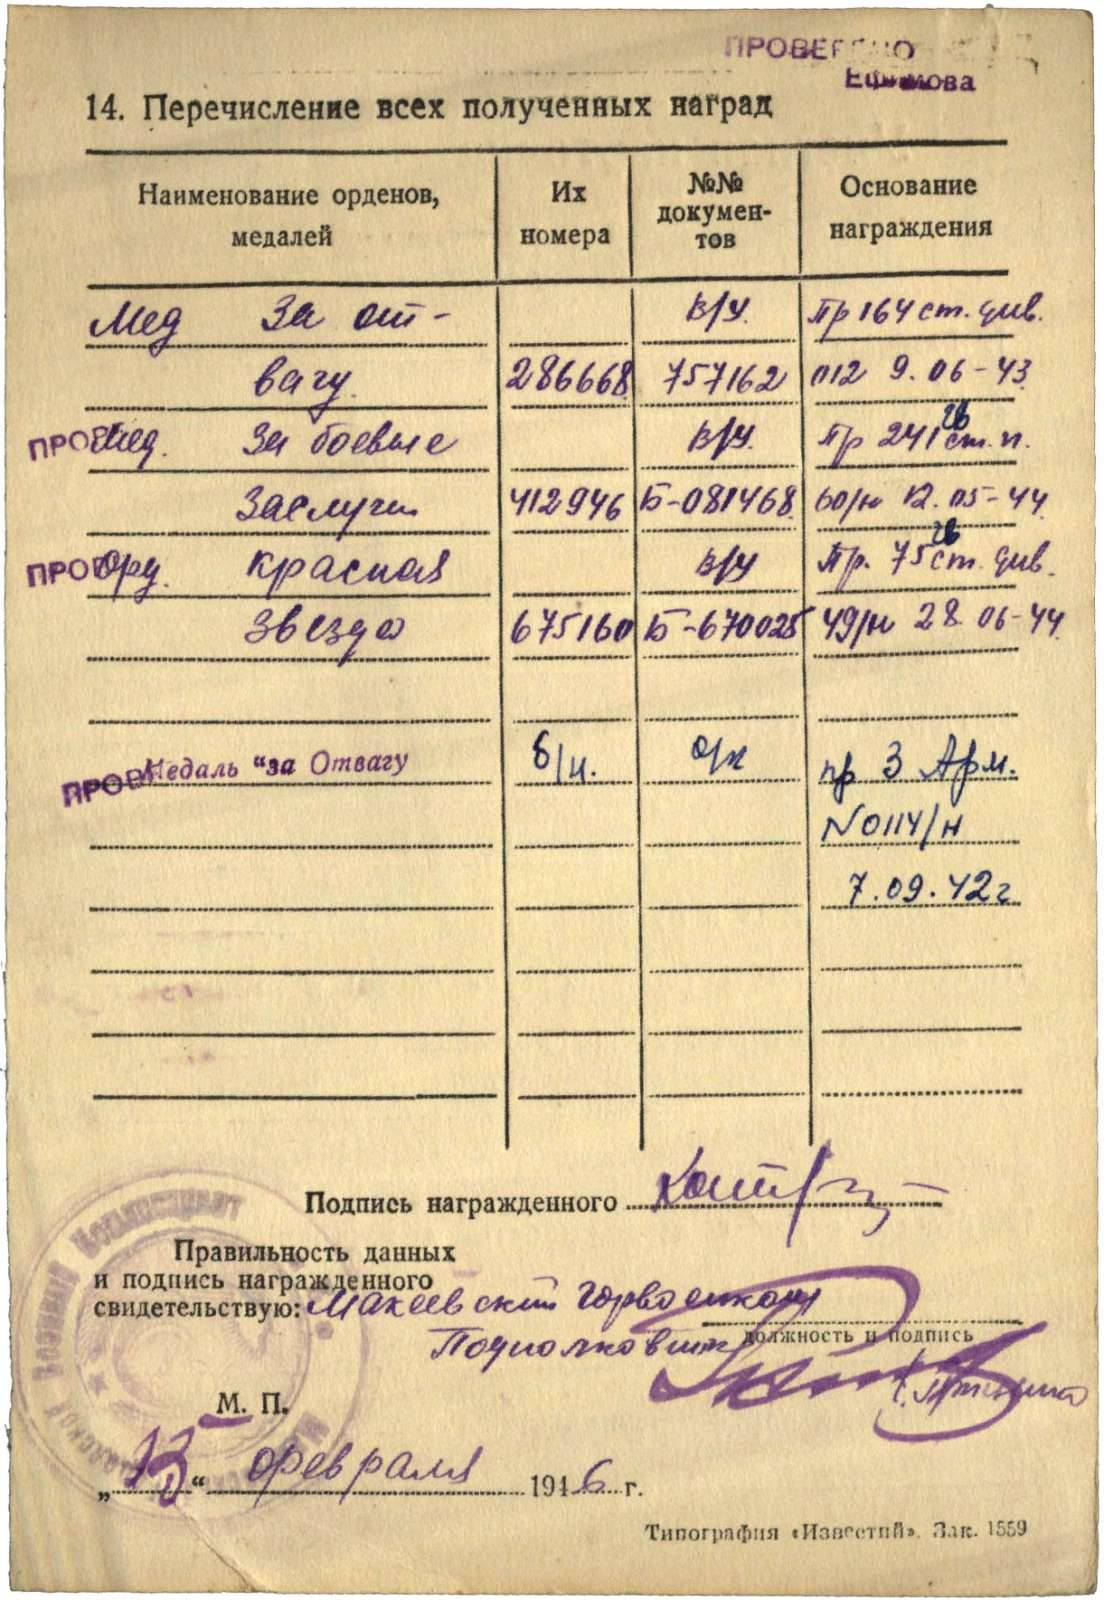 ПРОВЕРЕНО
Ефимова
14. Перечисление всех полученных наград
Наименование орденов, медалей
Их номера
№№ докумен-тов
Основание награждения
Мед За от- В/У. Пр 164 ст. див.
вагу. 286668 757162 012 9.06-43
ПРОВ Мед. За боевые В/У. Пр 241 гв ст. п.
Заслуги 412946 Б-081468 60/н 12.05-44
ПРОВ Орд. Красная В/У Пр. 75 гв ст. див.
Звезда 675160 Б-670025 49/н 28.06-44
ПРОВ Медаль "за Отвагу б/н. пр 3 Арм.
N0114/н
7.09.42г
Подпись награжденного
Правильность данных
и подпись награжденного
свидетельствую: Макеевский горвоенком
Подполковник должность и подпись
М. П.
„ “ февраля 1946 г.
Типография «Известий». Зак. 1559